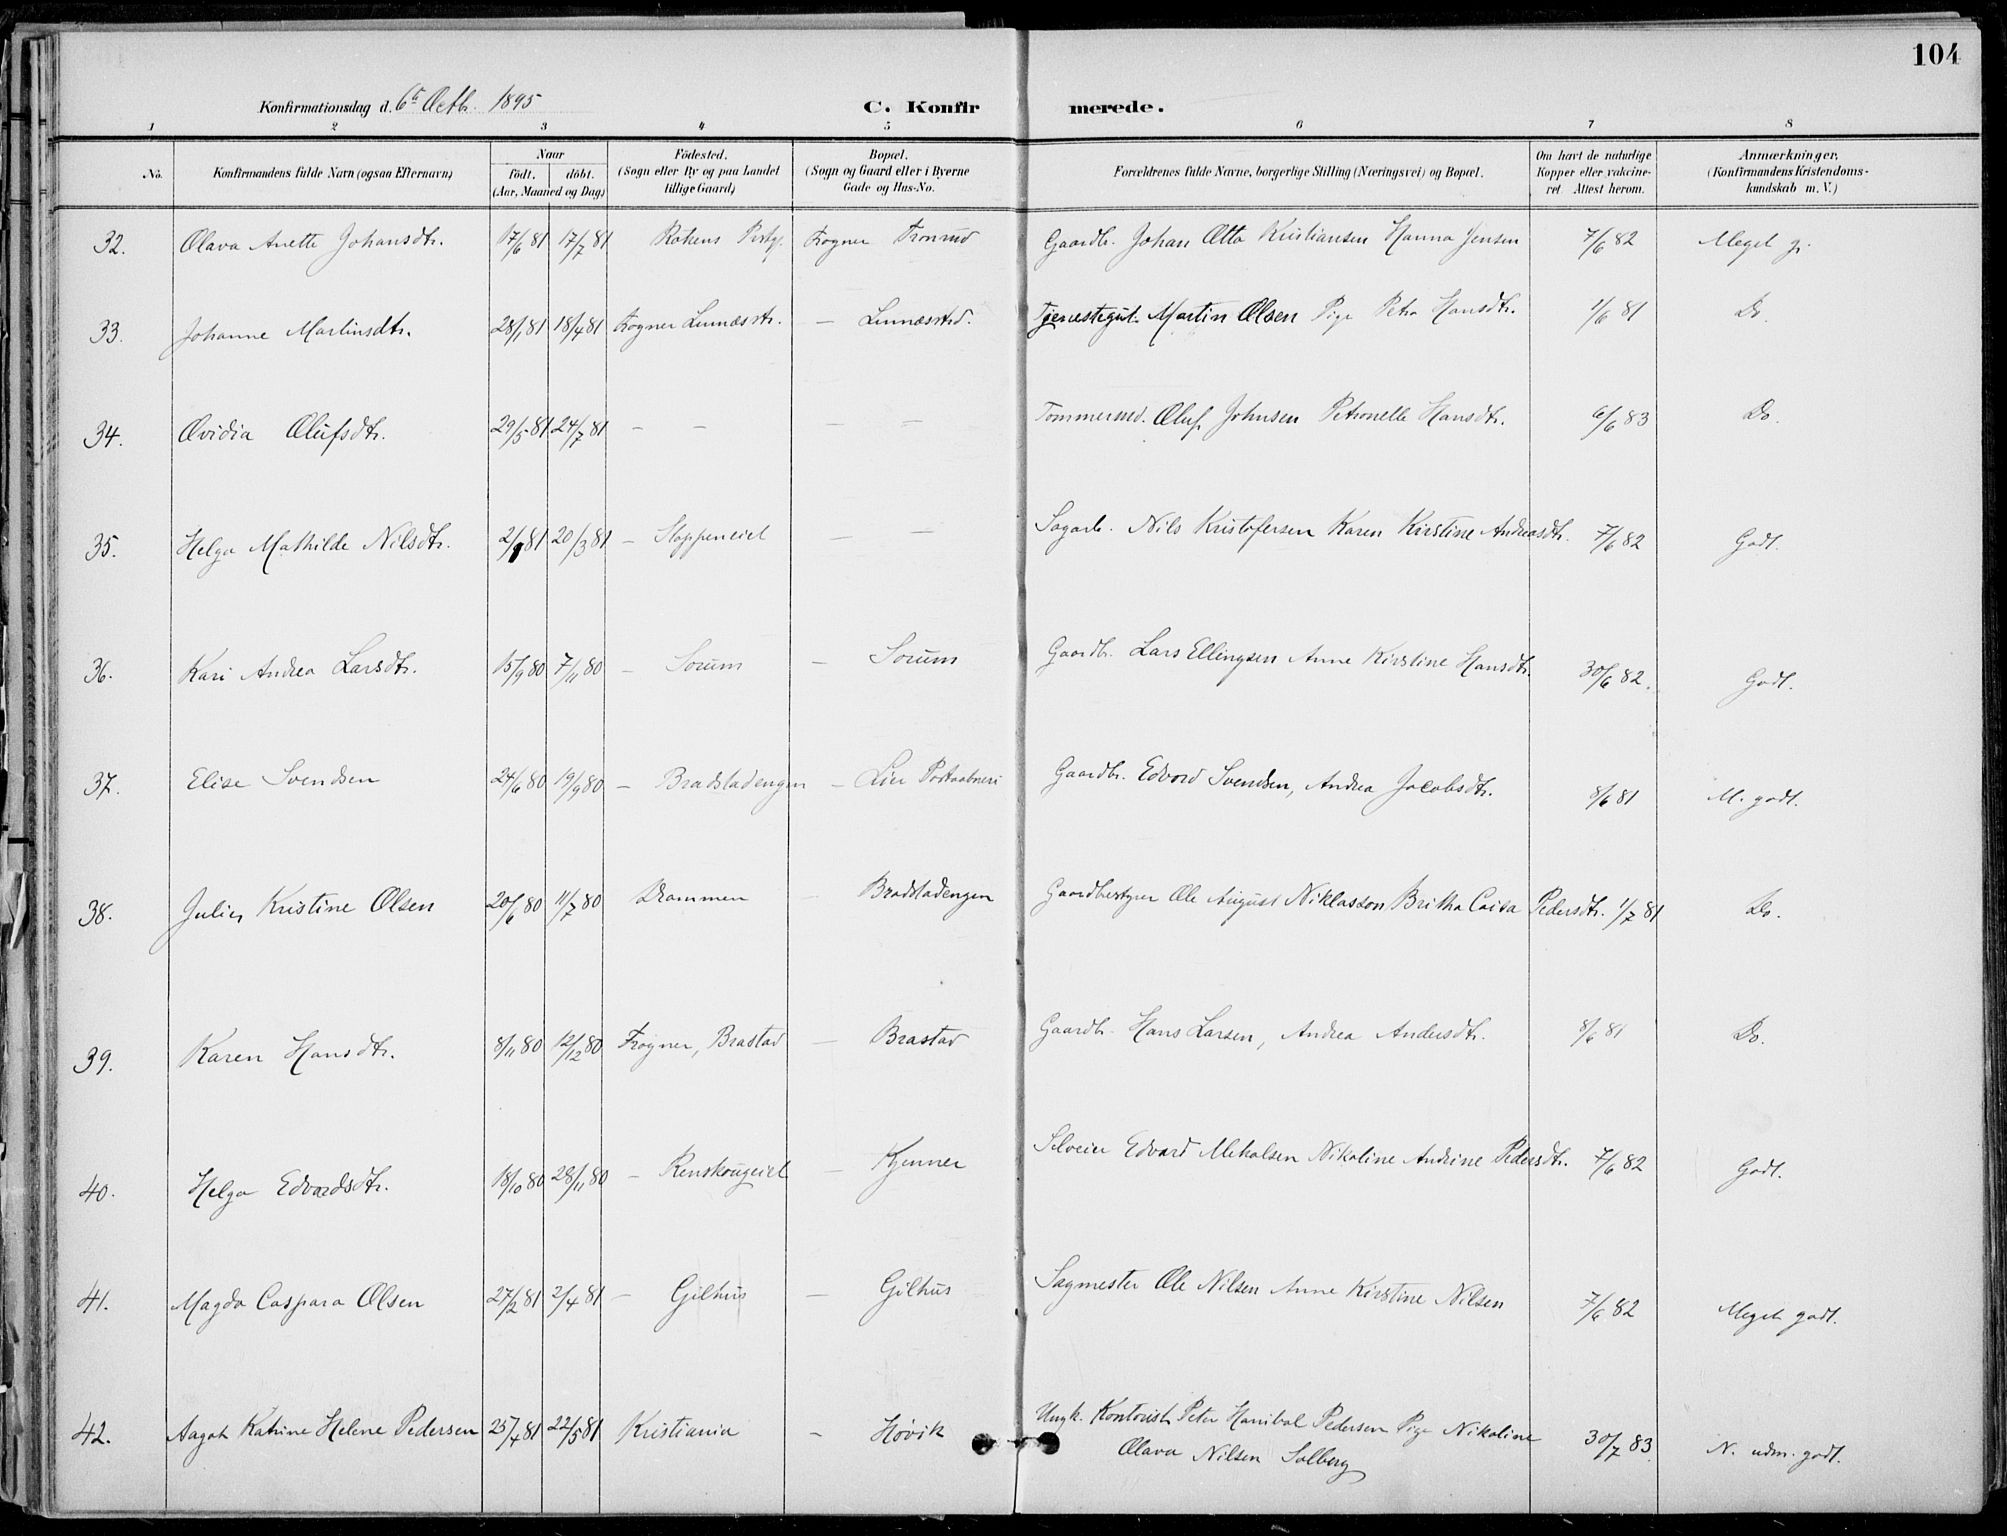 104
Konfirmationsdag d. 6te Octb. 1895
C. Konfir merede.
1 2 3 4 5 6 7 8
No. Konfirmandens fulde Navn (ogsaa Efternavn) Naar födt. döbt. (Aar, Maaned og Dag) Födested. (Sogn eller By og paa Landet tillige Gaard) Bopæl. (Sogn og Gaard eller i Byerne Gade og Hus-No. Forældrenes fulde Navne, borgerlige Stilling (Næringsvei) og Bopæl. Om havt de naturlige Kopper eller vakcineret. Attest herom. Anmærkninger, (Konfirmandens Kristendomskundskab m. V.)
32. Olava Anette Johansdtr. 17/6 81 17/7 81 Rökens Prstgj. Frogner Tronrud Gaardbr. Johan Otto Kristiansen Hanna Jensen 7/6 82 Meget g.
33. Johanne Martinsdtr. 28/1 81 18/4 81 Frogner Linnæsstr. — Linnæsstrd. Tjenestegut. Martin Olsen Pige Petra Hansdtr. 1/6 81 Do.
34. Ovidia Olufsdtr. 29/5 81 24/7 81 — — — — Tømmermd. Oluf Johnsen Petronelle Hansdtr. 6/6 83 Do.
35. Helga Mathilde Nilsdtr. 2/1 81 20/3 81 — Stoppeneiet — — Sagarb. Nils Kristofersen Karen Kirstine Andreasdtr. 7/6 82 Godt.
36. Kari Andrea Larsdtr. 15/9 80 7/11 80 — Sorum — Sorum Gaardbr. Lars Ellingsen Anne Kirstine Hansdtr. 30/6 82. Godt.
37. Elise Svendsen 24/6 80 19/9 80 — Bradstadengen — Lier Postaabneri Gaardbr. Edvard Svendsen, Andrea Jacobsdtr. 8/6 81 M. godt.
38. Julie Kristine Olsen 20/6 80 11/7 80 Drammen — Bradstadengen Gaardbestyrer Ole August Niklasson Britha Caisa Pedersdtr. 1/7 81 Do.
39. Karen Hansdtr. 8/11 80 12/12 80 Frogner, Brastad — Brastad Gaardbr. Hans Larsen, Andrea Andersdtr. 8/6 81 Do.
40. Helga Edvardsdtr. 18/10 80 28/11 80 — Renskougeiet — Kjenner Selveier Edvard Mikalsen Nikoline Andrine Pedersdtr. 7/6 82 Godt.
41. Magda Caspara Olsen 27/2 81 2/4 81 — Gilhus — Gilhus Sagmester Ole Nilsen Anne Kirstine Nilsen 7/6 82 Meget godt.
42. Aagot Katrine Helene Pedersen 25/4 81 22/5 81 Kristiania — Høvik Ungk. Kontorist Peter Hanibal Pedersen Pige Nikoline
Olava Nilsen Solberg 30/7 83. N. udm. godt.